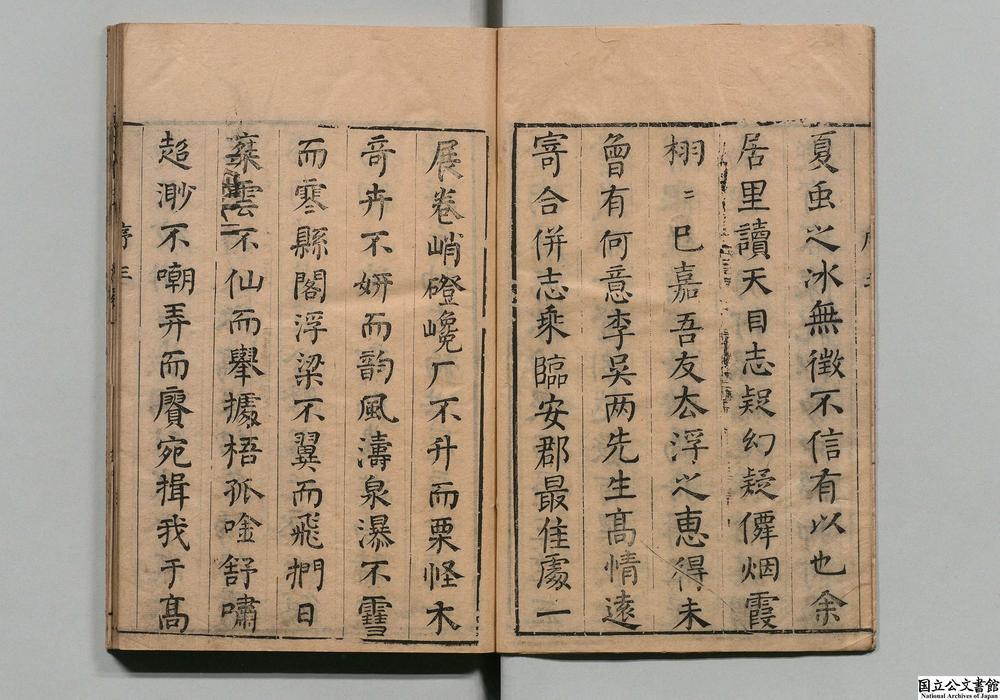 夏䖝之冰無徴不信有以也余
居里讀天目志疑幻疑僻烟霞
栩〻巳嘉吾友太浮之恵得未
曾有何意李吳两先生高情遠
寄合併志乘臨安郡最佳處一
展卷峭磴巉厂不升而栗怪木
竒卉不妍而韵風濤泉瀑不雪
而寒縣閣浮梁不翼而飛捫日
蘂雲不仙而舉據梧孤唫舒嘯
超渺不嘲弄而賡宛揖我于高
序三
国立公文書館
National Archives of Japan